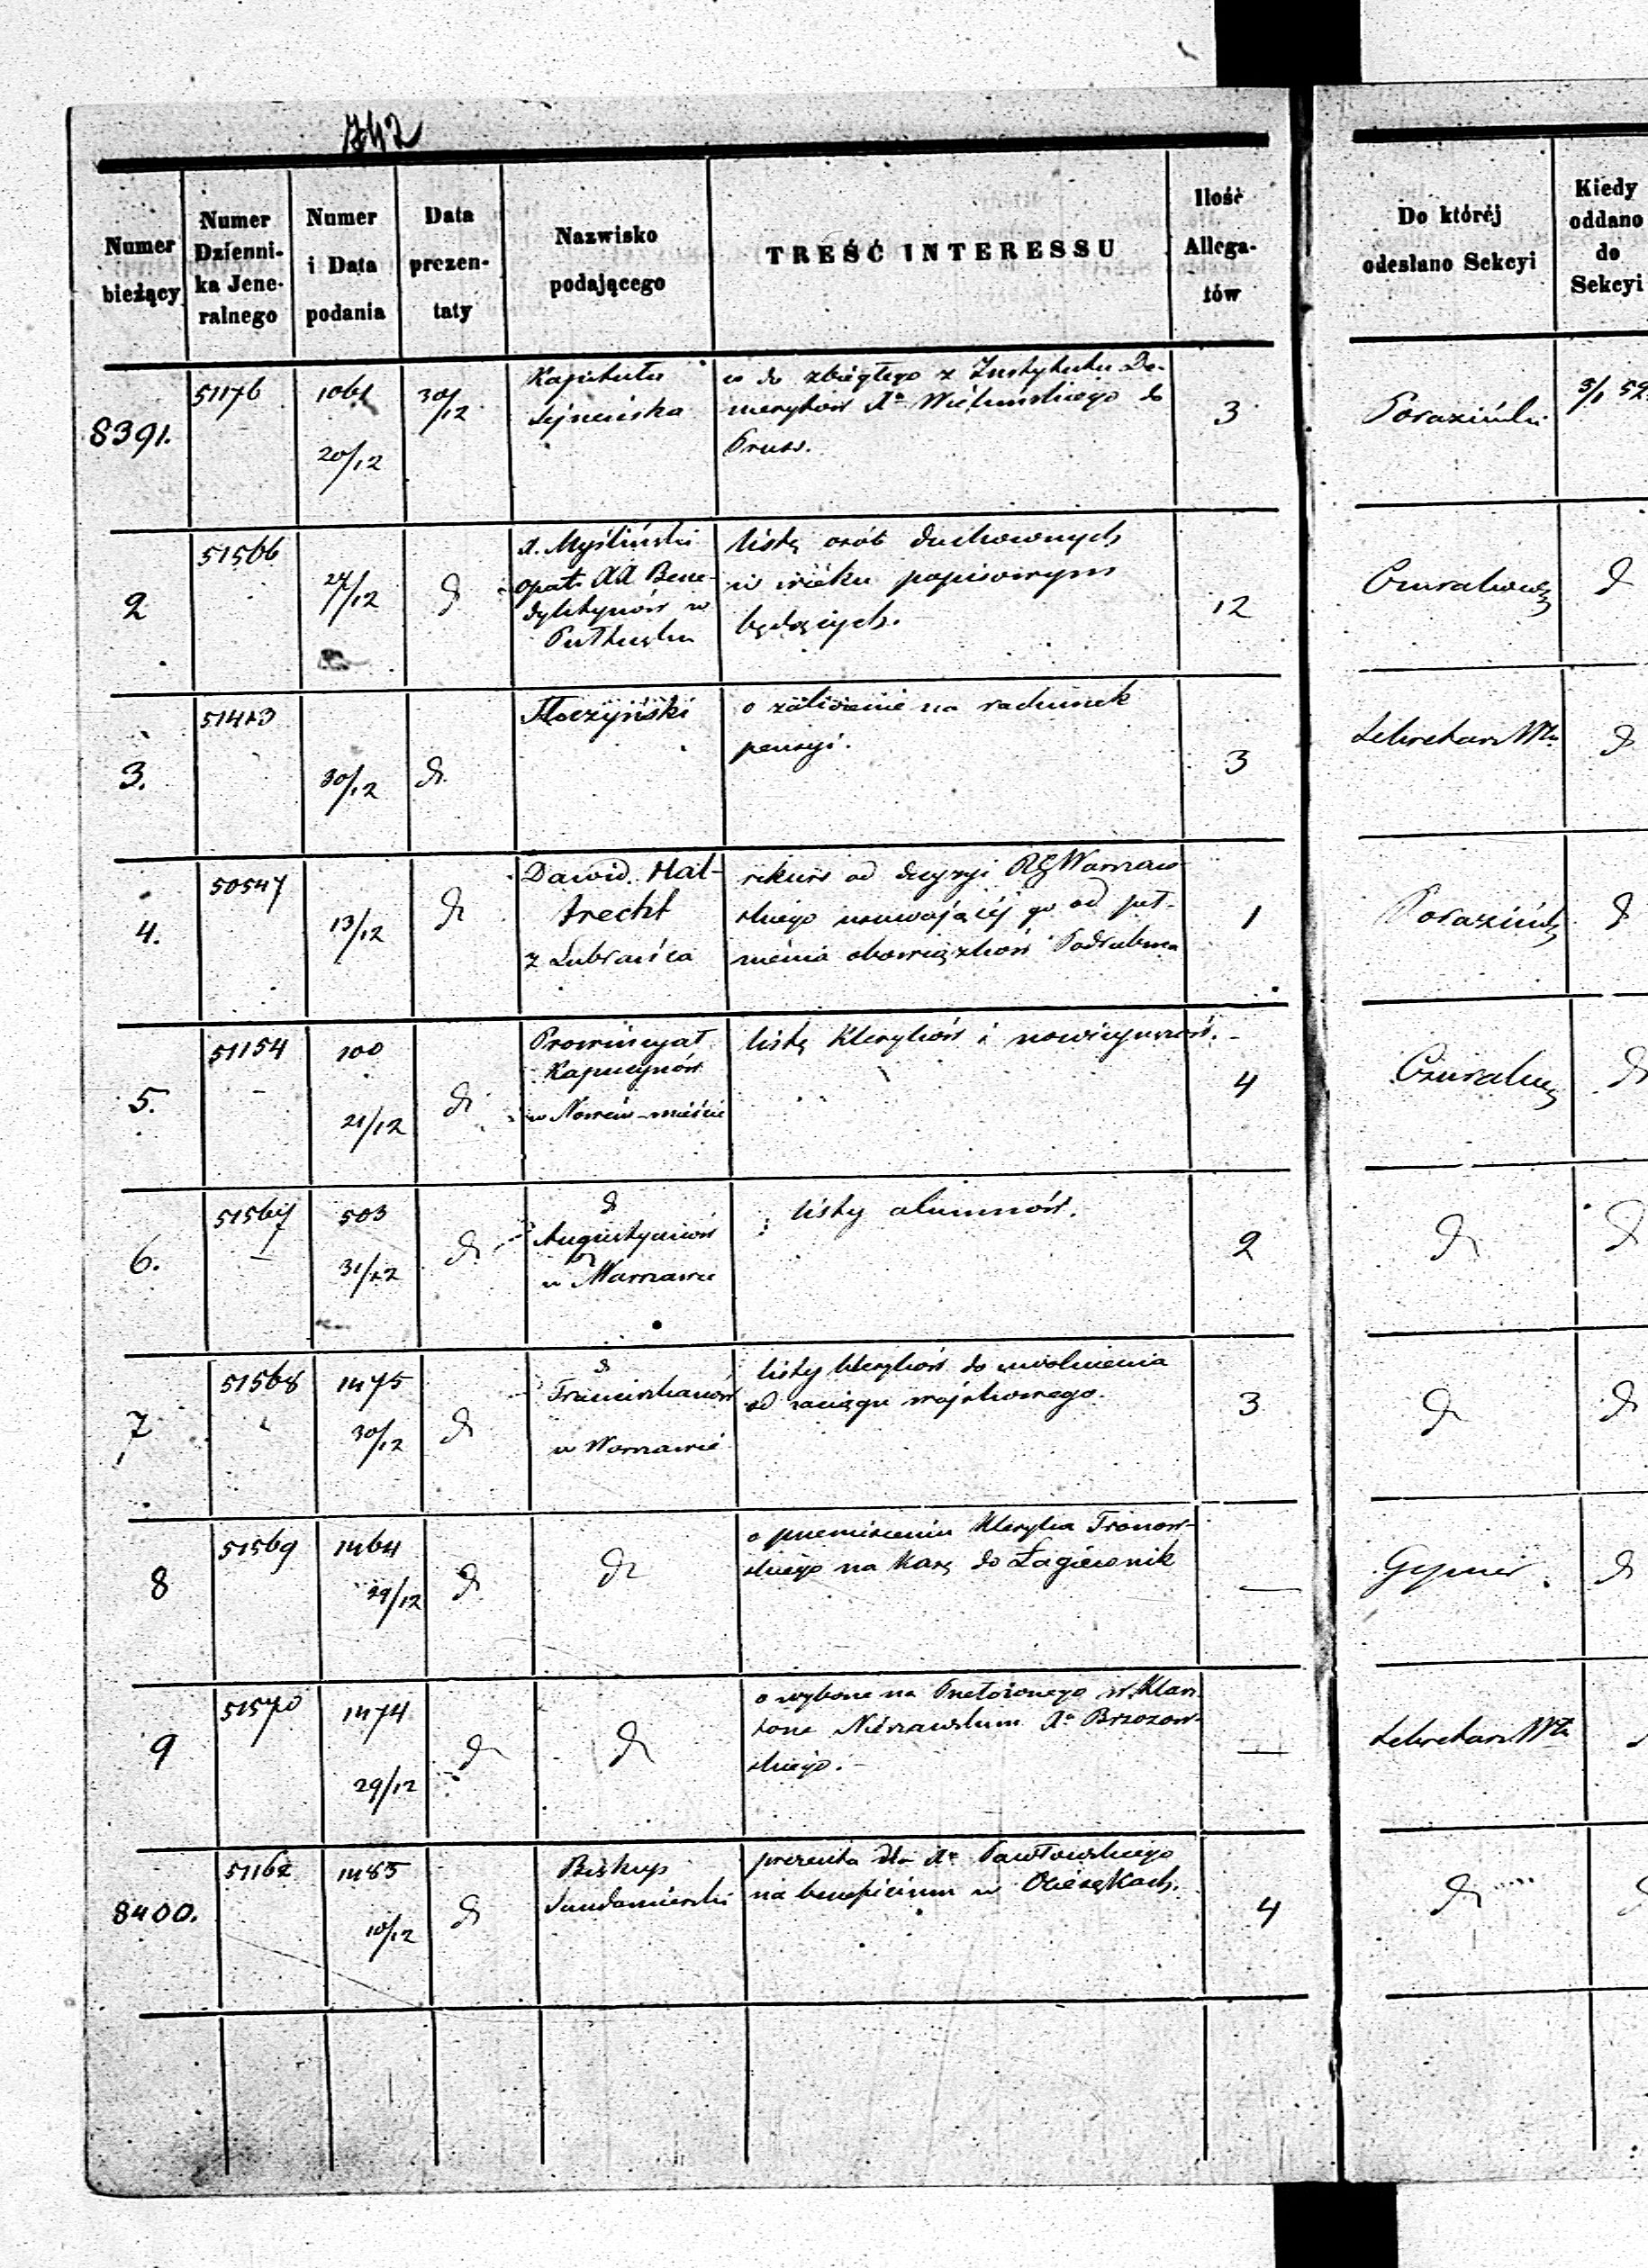 742
Numer bieżący
Numer Dzienni-ka Jene-ralnego
Numer i Data podania
Data prezen-taty
Nazwisko podającego
TREŚĆ INTERESSU
Ilość Allega-tów
Do któréj odesłano Sekcyi
Kiedy oddano do Sekcyi
8391.
51176
1061
20/12
30/12
Kapituła
Sejneńska
co do zbiegłego z Instytutu De-
merytów Xa
do
Pruss.
3
Poraziński
5/1 52
2
51566
27/12
d
X. Myśliński
Opat XX. Bene-
dyktynów w
Pułtusku
listę osób duchownych
w wieku popisowym
będących.
12
d
3.
51413
30/12
d
Tłoczyński
o zaliczenie na rachunek
pensyi.
3
Sekretarz
d
4.
50547
13/12
d
Dawid Hal-
trecht
z Lubrańca
rekurs od decyzyi RG Warszaw-
skiego usuwającéj go od peł-
nienia obowiązków Podrabina
1
Poraziński
d
5.
51154
100
21/12
d
Prowincyał
Kapucynów
w Nowém-mieście
listę Kleryków i nowicyuszów.
4
d
6.
51567
503
31/12
d
d
Augustyanów
w Warszawie
listy alumnów.
2
d
d
7
51568
1475
30/12
d
d
Franciszkanów
w Warszawie
listy kleryków do uwolnienia
od zaciągu wojskowego.
3
d
d
8
51569
1464
29/12
d
d
o przeniesieniu Kleryka Tronow-
skiego na karę do Łagiewnik
—
d
9
51570
1474
29/12
d
d
o wyborze na Przełożonego w Klasz-
torze Nieszawskim Xa Brzozow-
skiego.
—
Sekretarz
8400.
51162
1483
10/12
d
Biskup
Sandomierski
prezenta dla Xa Pawłowskiego
na beneficium w Ociesękach.
4
d